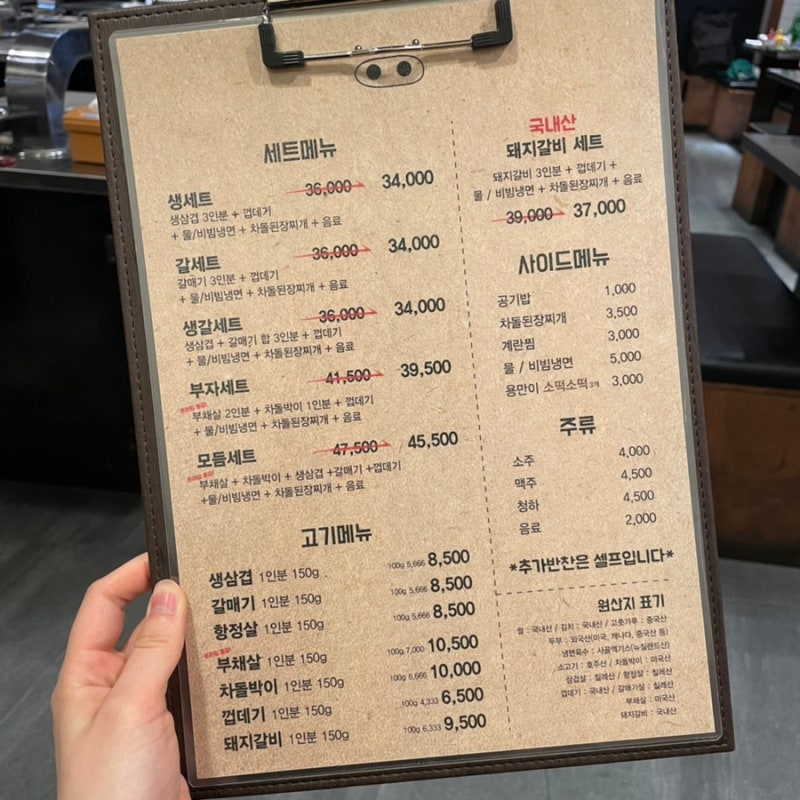 세트메뉴
생세트 36,000 34,000
생삼겹 3인분 + 껍데기
+ 물/비빔냉면 + 차돌된장찌개 + 음료
갈세트 36,000 34,000
갈매기 3인분 + 껍데기
+ 물/비빔냉면 + 차돌된장찌개 + 음료
생갈세트 36,000 34,000
생삼겹 + 갈매기 합 3인분 + 껍데기
+ 물/비빔냉면 + 차돌된장찌개 + 음료
부자세트 41,500 39,500
부채살 2인분 + 차돌박이 1인분 + 껍데기
+ 물/비빔냉면 + 차돌된장찌개 + 음료
모듬세트 47,500 45,500
부채살 + 차돌박이 + 생삼겹 +갈매기 +껍데기
+물/비빔냉면 + 차돌된장찌개 + 음료
고기메뉴
생삼겹 1인분 150g 100g 5,666 8,500
갈매기 1인분 150g 100g 5,666 8,500
항정살 1인분 150g 100g 5,666 8,500
부채살 1인분 150g 100g 7,000 10,500
차돌박이 1인분 150g 100g 6,666 10,000
껍데기 1인분 150g 100g 4,333 6,500
돼지갈비 1인분 150g 100g 6,333 9,500
국내산
돼지갈비 세트
돼지갈비 3인분 + 껍데기 +
물 / 비빔냉면 + 차돌된장찌개 + 음료
39,000 37,000
사이드메뉴
공기밥 1,000
차돌된장찌개 3,500
계란찜 3,000
물 / 비빔냉면 5,000
용만이 소떡소떡 3개 3,000
주류
소주 4,000
맥주 4,500
청하 4,500
음료 2,000
*추가반찬은 셀프입니다*
원산지 표기
쌀 : 국내산 / 김치 : 국내산 / 고춧가루 : 중국산
두부 : 외국산(미국, 캐나다, 중국산 등)
냉면육수 : 사골엑기스(뉴질랜드산)
소고기 : 호주산 / 차돌박이 : 미국산
삼겹살 : 칠레산 / 항정살 : 칠레산
껍데기 : 국내산 / 갈매기살 : 칠레산
부채살 : 미국산
돼지갈비 : 국내산